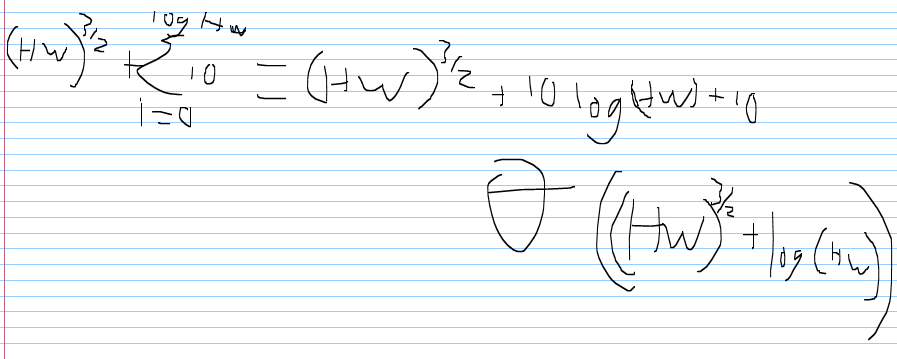 (HW)^{3/2} + \sum_{i=0}^{log HW} 10 = (HW)^{3/2} + 10 log(HW) + 10
Θ((HW)^{3/2} + log(HW))